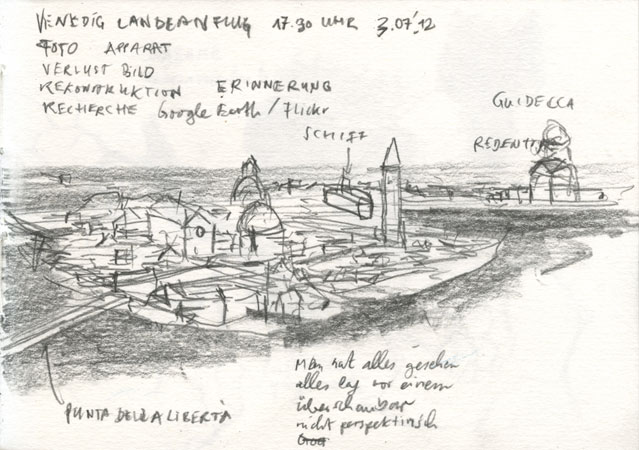 VENEDIG LANDEANFLUG 17.30 UHR 3.07.'12
FOTO APPARAT
VERLUST BILD
REKONSTRUKTION ERINNERUNG
RECHERCHE Google Earth / Flickr
SCHIFF
GUIDECCA
REDENTORE
PUNTA DELLA LIBERTÀ
Man hat alles gesehen
alles lag vor einem
überschaubar
nicht perspektivisch